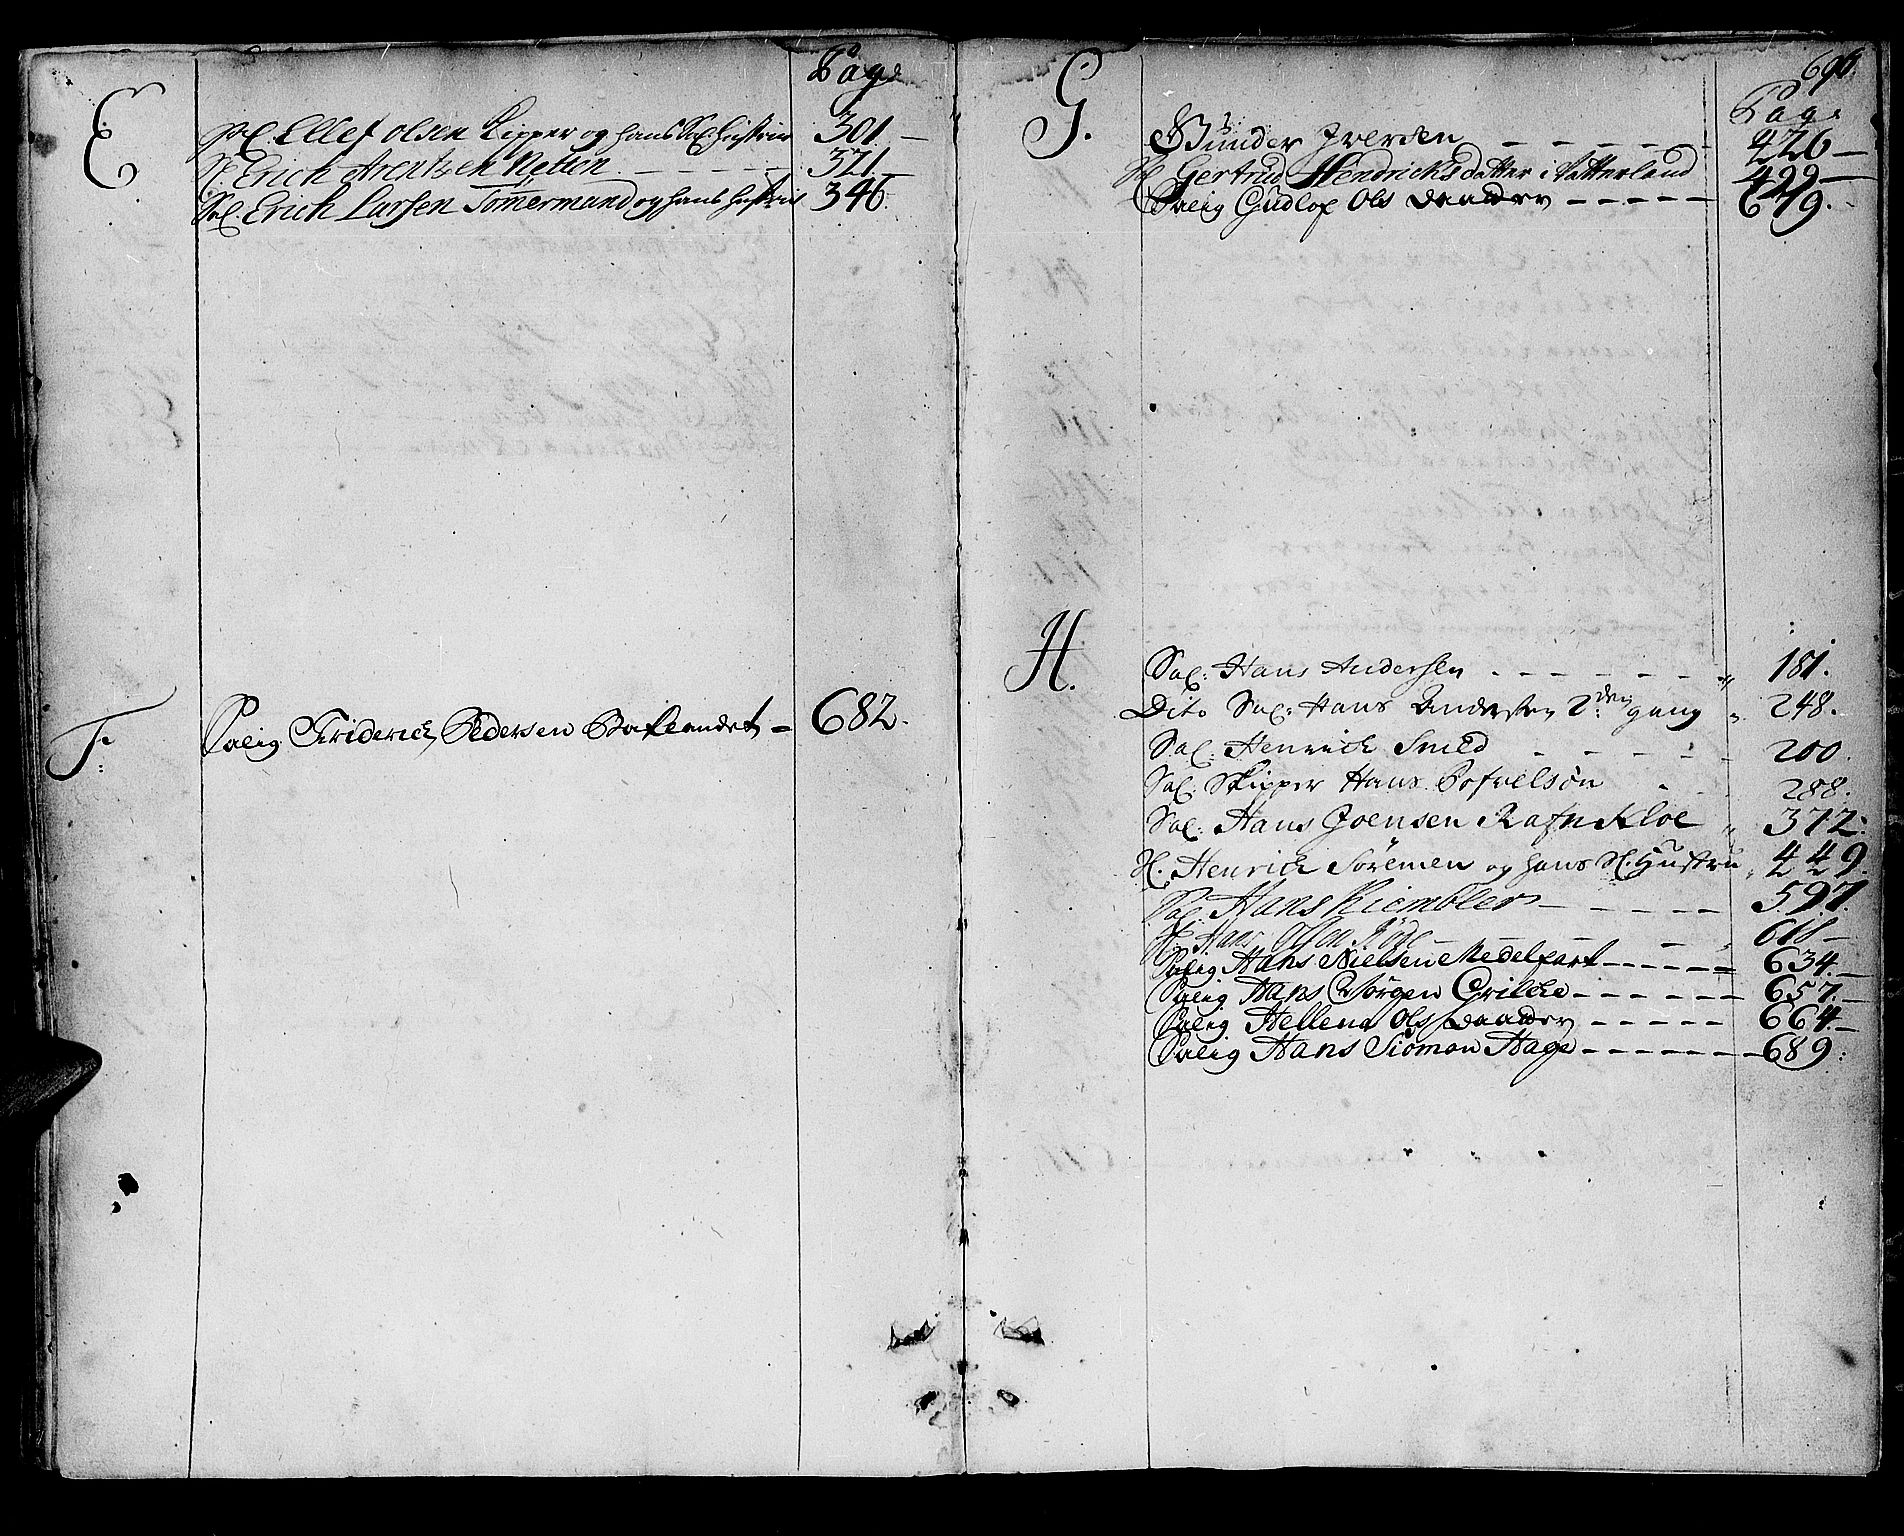 Page
E
Sl: Ellef olsen Kipper og hans Sal: hustrue 301
Sl: Erich Arentzen 321
Sal: Erich Larsen Tömermand og hans hustrue 346
F:
Salig Friderich Pedersen Baklandet 682.
Page
G.
Gunder Iversen 426
Sl: Gertrud Hendricksdatter i Vatterland 499
Salig Gudlof Ols daatter 679.
H.
Sal: Hans Andersen 181.
Dito Sal: Hans Andersen 2den gang 248.
Sal: Henrich Smed 200.
Sal: Skipper Hans Pofvelsøn 288.
Sal: Hans Joensen Rafnkloe 372:
Sl. Henrich Sörensen og hans Sl. Hustru 449.
Sal: Hans Kiembler 597.
Sl. Hans Olsen
Salig Hans Nielsen Medelfart 634.
Salig Hans Jörgen 657.
Salig Hellena Ols daatter 664.
Salig Hans Siomon Hage 689.